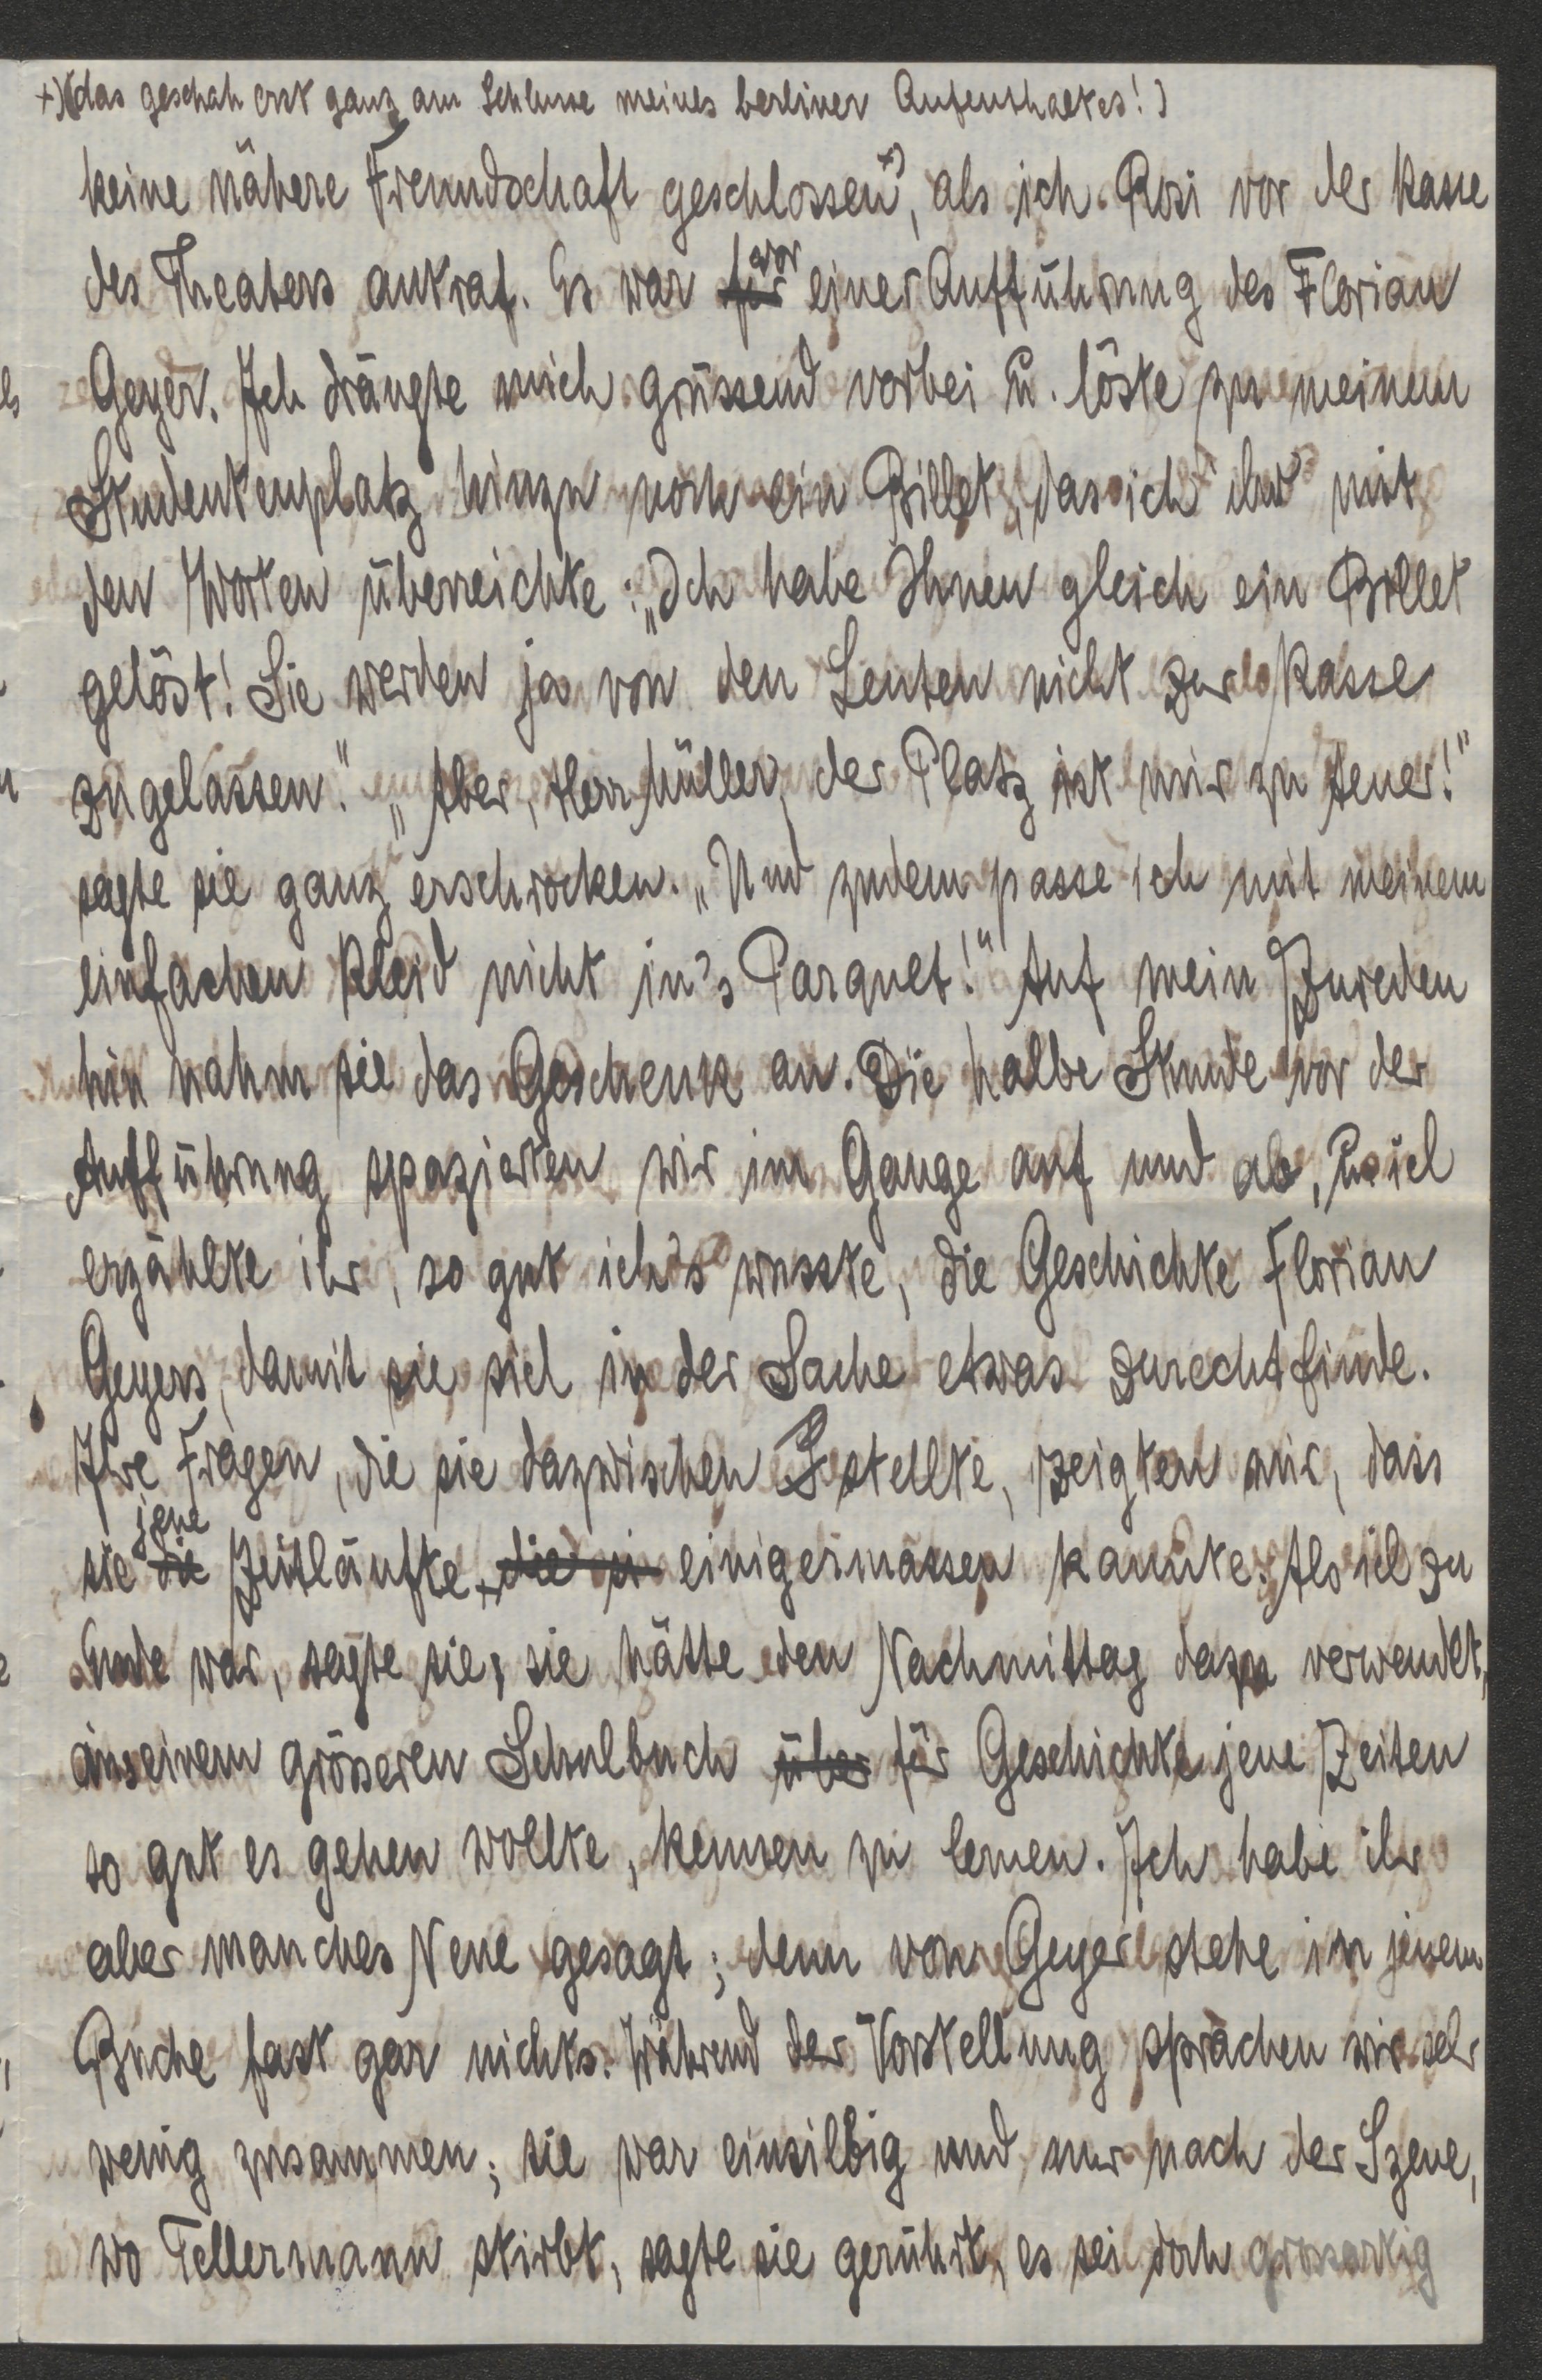 +) (das geschah erst ganz am Schlusse meines berliner Aufenthaltes!)
keine nähere Freundschaft geschlossen +), als ich Rosi vor der Kasse
des Theaters antraf. Es war für vor einer Aufführung des Florian
Geyer. Ich drängte mich grüssend vorbei u. löste zu meinem
Studentenplatz hinzu noch ein Billet, das ich ihr mit
den Worten überreichte: „Ich habe Ihnen gleich ein Billet
gelöst! Sie werden ja von den Leuten nicht zur Kasse
zugelassen." „Aber, Herr Müller, der Platz ist mir zu teuer!"
sagte sie ganz erschrocken. „Und zudem passe ich mit meinem
einfachen Kleid nicht in's Parquet!" Auf mein Zureden
hin nahm sie das Geschenk an. Die halbe Stunde vor der
Aufführung spazierten wir im Gange auf und ab, u. ich
erzählte ihr, so gut ich's wusste, die Geschichte Florian
Geyers, damit sie sich in der Sache etwas zurechtfinde.
Ihre Fragen, die sie dazwischen stellte, zeigten mir, dass
sie die jene Zeitläufte, die einigermassen kannte. Als ich zu
Ende war, sagte sie, sie hätte den Nachmittag dazu verwendet,
aus einem grösseren Schulbuch über für Geschichte jene Zeiten
so gut es gehen wollte, kennen zu lernen. Ich habe ihr
aber manches Neue gesagt; denn von Geyer stehe in jenem
Buche fast gar nichts. Während der Vorstellung sprachen wir sehr
wenig zusammen; sie war einsilbig und nur nach der Szene,
wo Tellermann stirbt, sagte sie gerührt, es sei doch grossartig